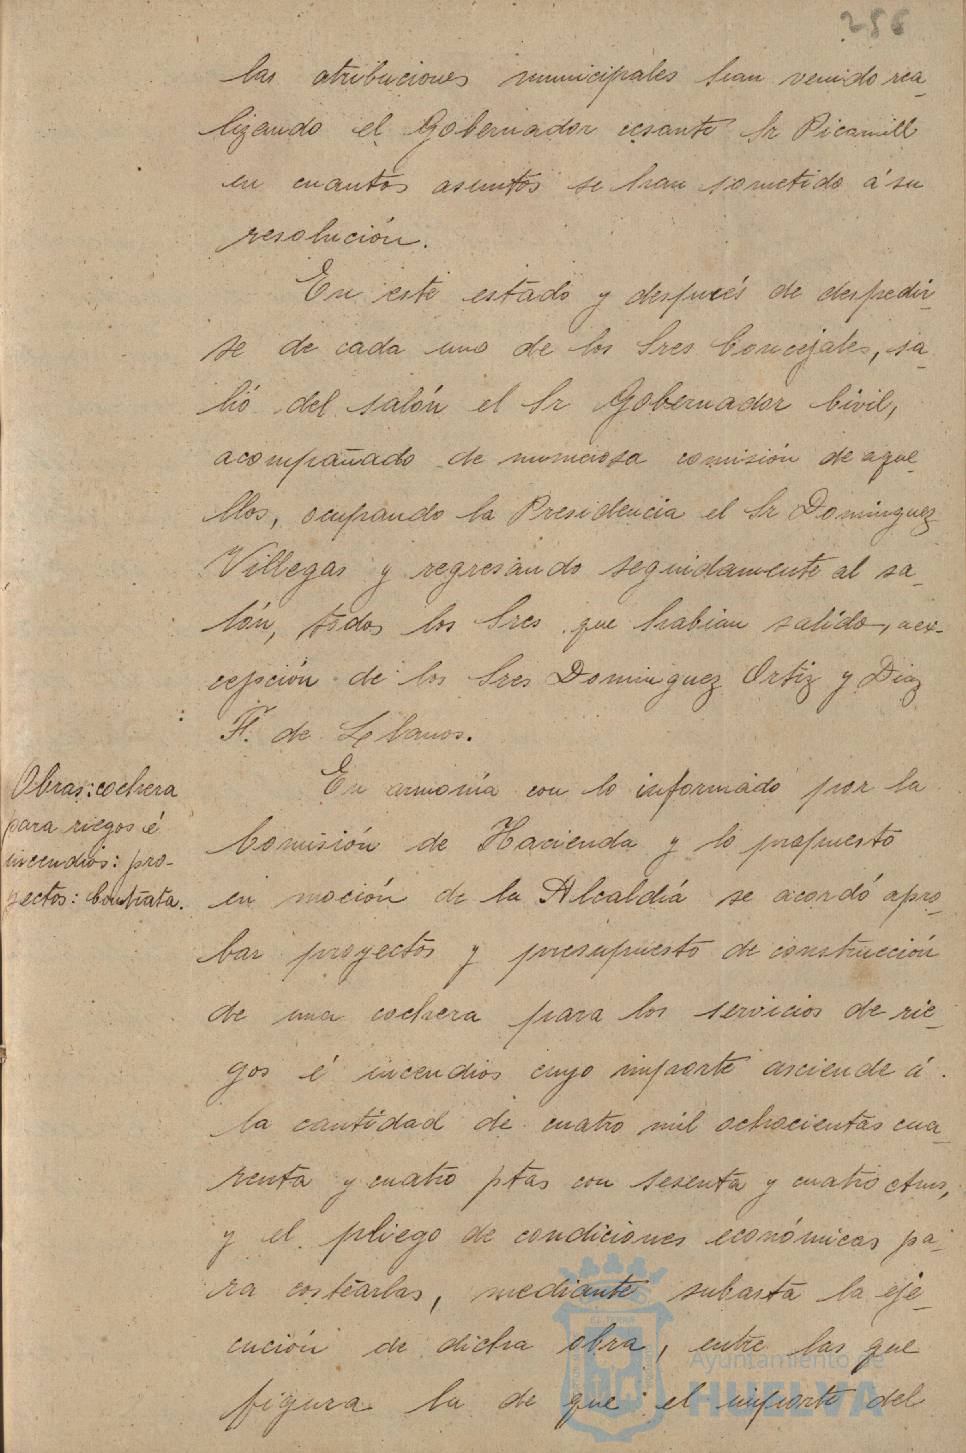 256
las atribuciones municipales han venido rea-
lizando el Gobernador cesante Sr Picamill
en cuantos asuntos se han sometido á su
resolución.
En este estado y después de despedir-
se de cada uno de los Sres Concejales, sa-
lió del salón el Sr Gobernador Civil,
acompañado de numerosa comisión de aque-
llos, ocupando la Presidencia el Sr Dominguez
Villegas y regresando seguidamente al sa-
lón, todos los Sres que habian salido, a ex-
cepción de los Sres Dominguez Ortiz y Diaz
F. de Lebanos.
Obras: cochera
para riegos é
incendios: pro-
yectos: Contrata.
En armonía con lo informado por la
Comisión de Hacienda y lo propuesto
en moción de la Alcaldía se acordó apro-
bar proyectos y presupuesto de construcción
de una cochera para los servicios de rie-
gos é incendios cuyo importe asciende á
la cantidad de cuatro mil ochocientas cua-
renta y cuatro ptas con sesenta y cuatro ctms,
y el pliego de condiciones económicas pa-
ra costearlas, mediante subasta la eje-
cución de dicha obra, entre las que
figura la de que el importe del
Ayuntamiento de
HUELVA